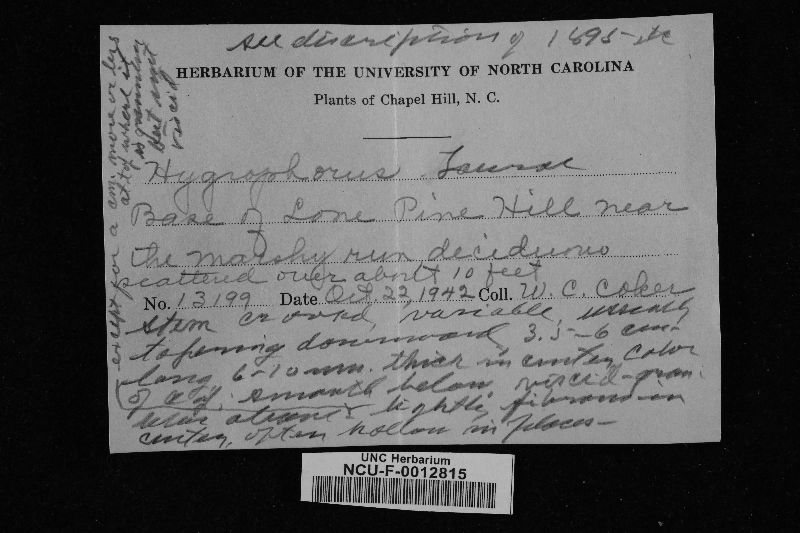 see discription of 1895 etc
HERBARIUM OF THE UNIVERSITY OF NORTH CAROLINA
Plants of Chapel Hill, N. C.
Hygrophorus Laurae
Base of Lone Pine Hill near
the marshy run, deciduous
scattered over about 10 feet
No. 13199 Date Oct 22, 1942 Coll. W. C. Coker
Stem crooked, variable, usually
tapering downward, 3.5-6 cm.
long, 6-10 mm. thick in center, color
of cap, smooth below, viscid-gran
ular above lightly fibrous in
center, often hollow in places-
except for a cm. more or less
at top where it
is granular
but not
viscid
UNC Herbarium
NCU-F-0012815